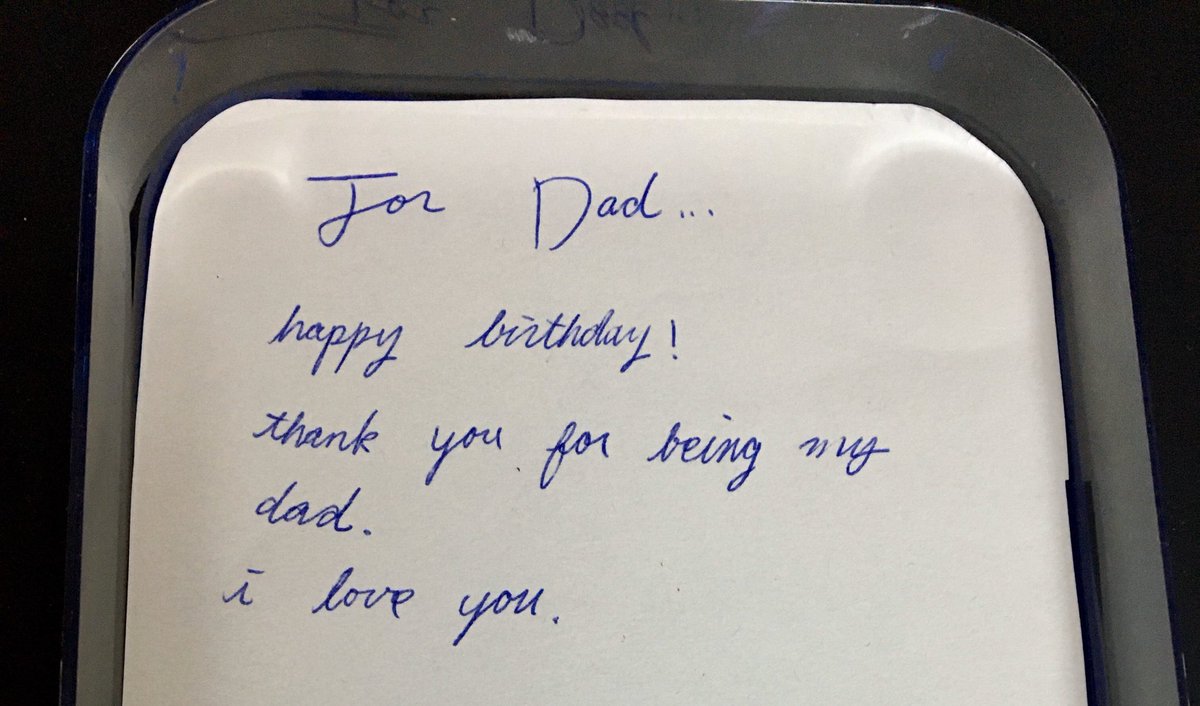 For Dad...
happy birthday!
thank you for being my
dad.
i love you.